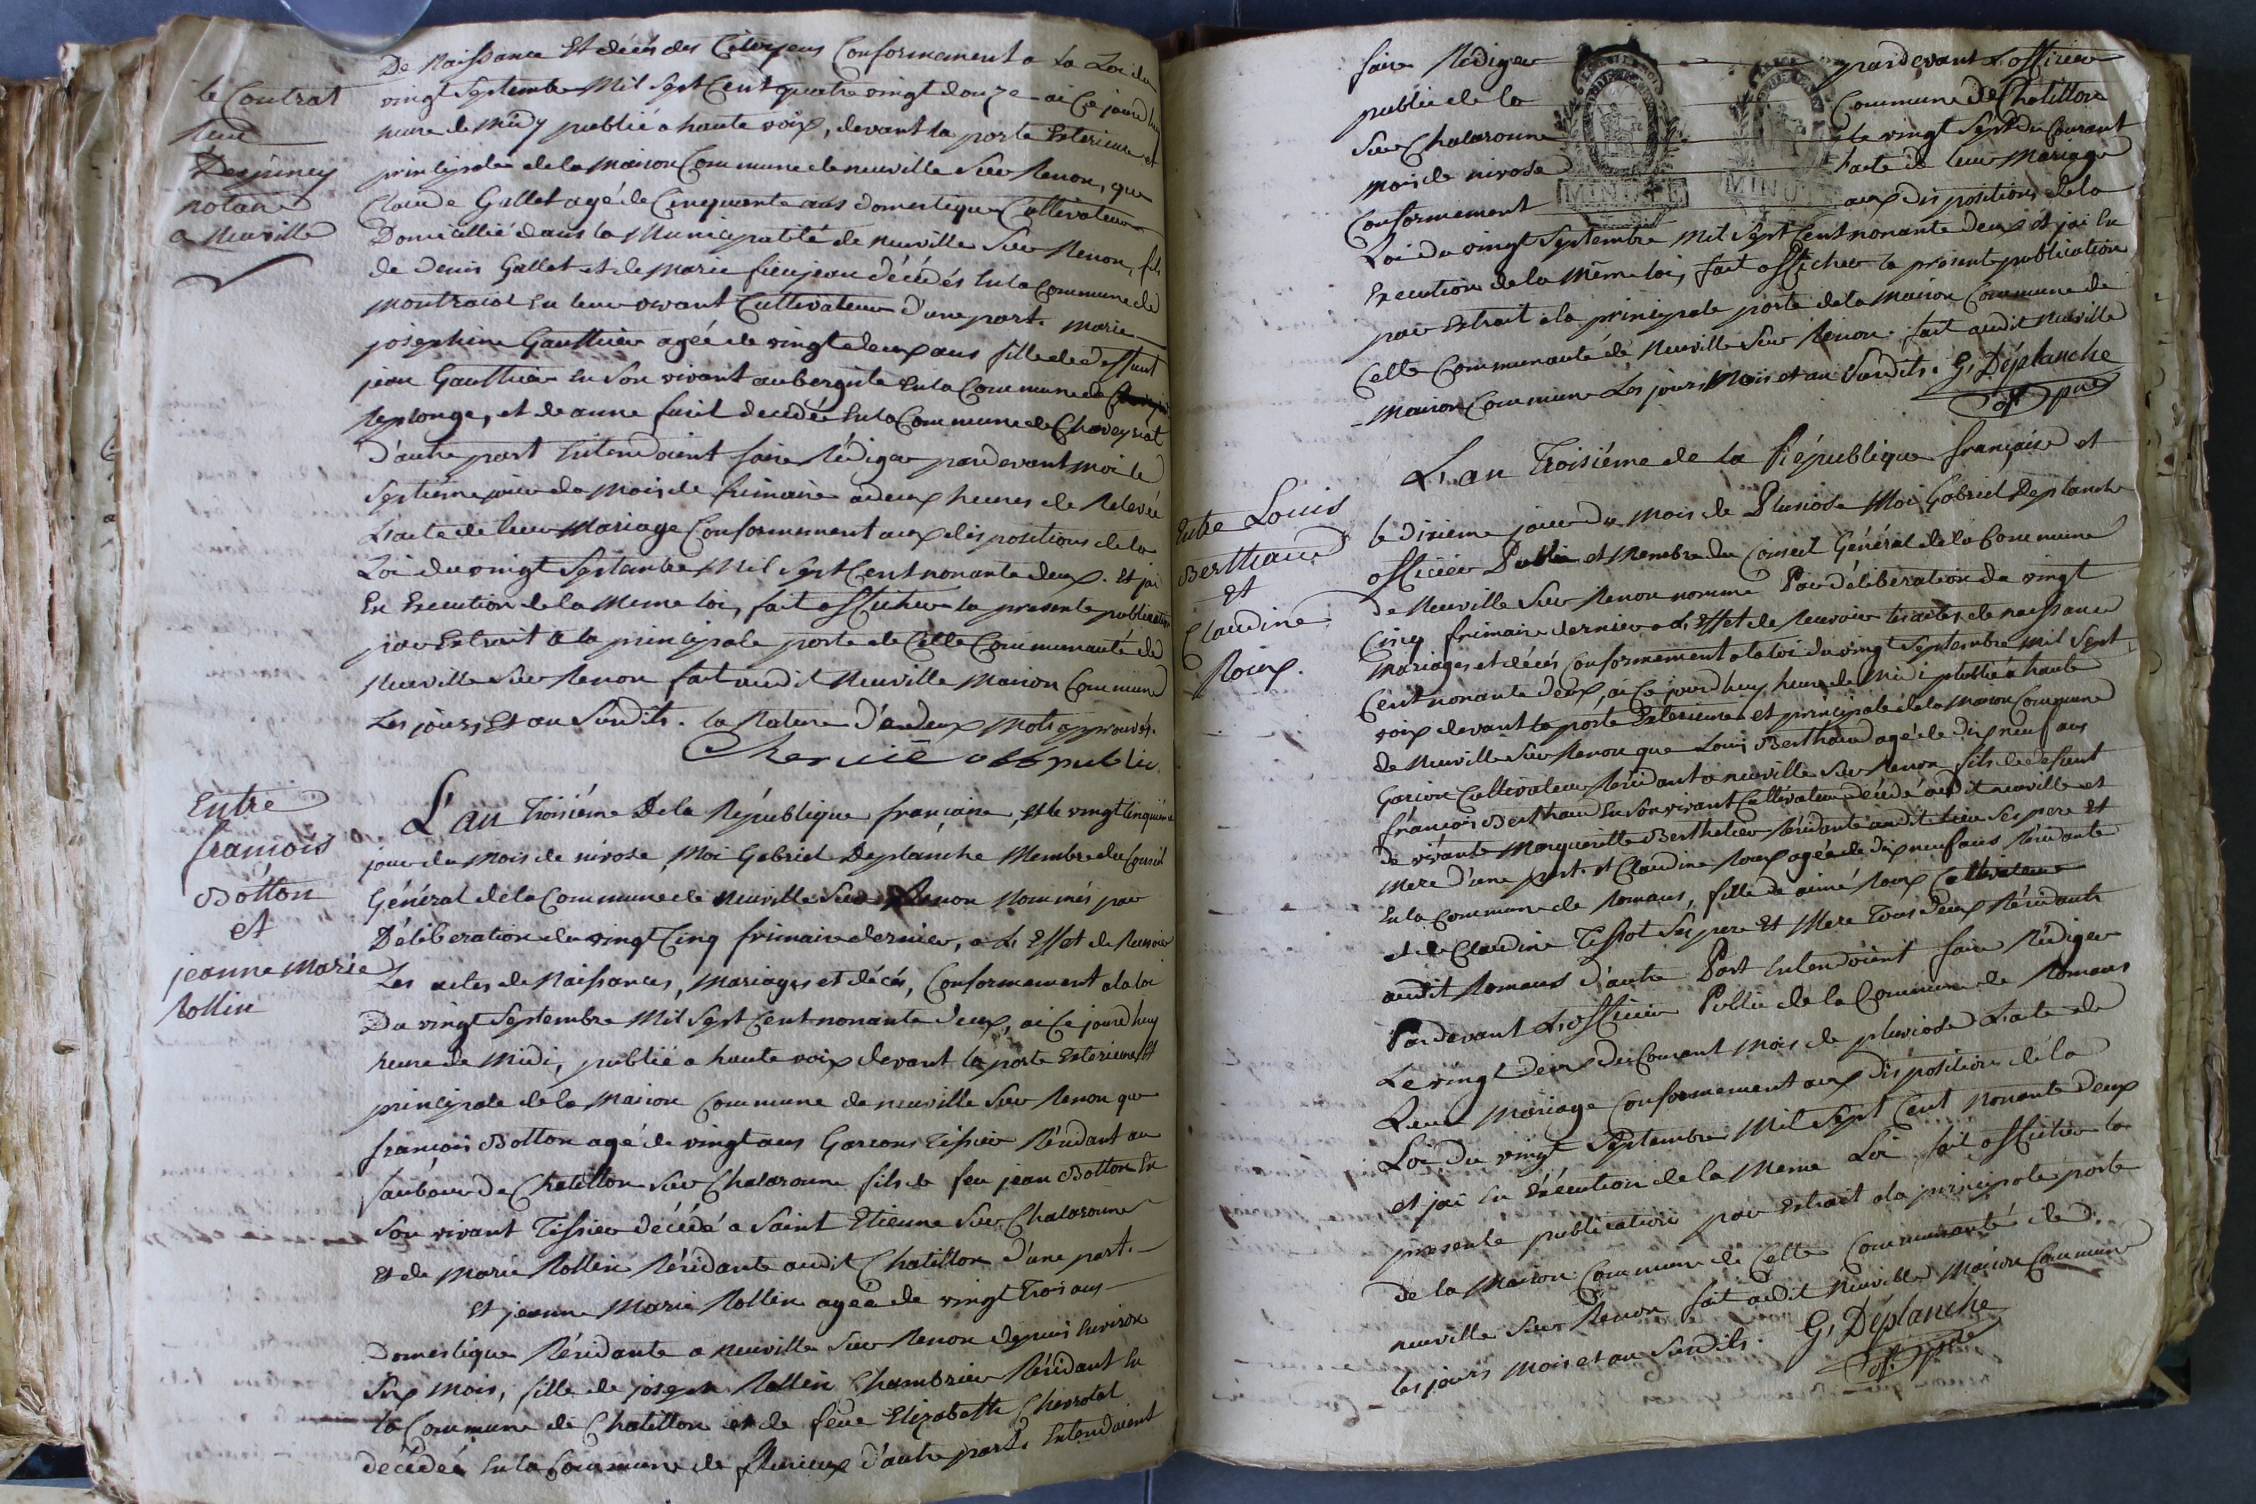 le Contrat
Reçu
Desjuiney
notaire
a Neuville
De Naissance Et décés des Citoyens Conformement a La Loi du
vingt Septembre Mil Sept Cent quatre vingt douze ai Ce jourd'huy
heure de Midy publié a haute voix, devant la porte Exterieure et
principale de la Maison Commune de neuville Sur Renon, que
Claude Gallet agé de Cinquante ans domestique Cultivateur
Domicillié dans la Municipalité de neuville Sur Renon, fils
de denis Gallet et de Marie fieujean décédés En la Commune de
montracol En leur vivant Cultivateur d'une part. Marie
josephine Gauthier agée de vingt deux ans fille de deffunt
jean Gauthier En Son vivant aubergiste En la Commune de
Replonge, et de anne decédée En la Commune de Chaveyriat
d'autre part Entendoient faire Rédiger pardevant moi le
Septiéme jour du Mois de frimaire a deux heures de Relevée
L'acte de leur Mariage Conformement aux dispositions de la
Loi du vingt Septembre Mil Sept Cent nonante deux. Et jai
En Execution de la Meme loi, fait afficher la presente publication
par Extrait a la principale porte de Cette Communauté de
Neuville Sur Renon fait audit Neuville Maison Commune
Les jours Et an Susdits. la Rature d'endeux mots approuvés.
off public
Entre
françois
Botton
et
jeanne Marie
Rollin
L'an Troisiéme De la République française, et le vingt Cinquiéme
jour du Mois de nivose, Moi Gabriel Deplanche Membre du Conseil
Général de la Commune de Neuville Sur Renon Nommés par
Déliberation du vingt Cinq frimaire dernier, a L'Effet de Recevoir
Les actes de Naissances, Mariages et décés, Conformement a la loi
Du vingt Septembre Mil Sept Cent nonante deux, ai Ce jourd'huy
heure de Midi, publié a haute voix devant la porte Exterieure Et
principale de la Maison Commune de neuville Sur Renon que
françois Botton agé de vingt ans Garcons Tissier Résidant au
faubour De Chatillon Sur Chalaronne fils de feu jean Botton En
Son vivant Tissier décédé a Saint Etienne Sur Chalaronne
Et de Marie Rollin Résidante audit Chatillon d'une part.
Et jeanne Marie Rollin agée de vingt Trois ans
Domestique Résidante a neuville Sur Renon depuis Environ
Six Mois, fille de joseph Rollin Chambrier Résidant En
la Commune de Chatillon et de feue Elizabeth Chevrotat
décédée En la Commune de flurieux d'autre part. Entendoient
faire Rédiger pardevant L'officier
public de la Commune De Chatillon
Sur Chalaronne le vingt Sept Du Courant
Mois de nivose l'acte de leur Mariage
Conformement aux dispositions de la
MINUTE MINUTE
Loi du vingt Septembre Mil Sept Cent nonante deux et jai En
Execution de la Même loi, fait afficher la présente publication
par Extrait a la principale porte de la Maison Commune de
Cette Communauté de Neuville Sur Renon. fait audit Neuville
Maison Commune Les jours Mois et an Susdits. G, Déplanche
off. pu
Entre Louis
Berthaud
et
Claudine
Roux.
L'an Troisiéme de la République française et
le dixieme jour Du Mois de Pluviose Moi Gabriel Deplanche
officier Public et Membre du Conseil Général de la Commune
de Neuville Sur Renon nommé Par déliberation du vingt
Cinq frimaire dernier a L'Effet de Recevoir les actes de naissance
Mariages et décés Conformement a la loi du vingt Septembre Mil Sept
Cent nonante deux, ai Ce jourd'huy heure de Midi publié a haute
voix devant la porte Exterieure et principale de la Maison Commune
de Neuville Sur Renon que Louis Berthaud agé de dix neuf ans
Garcon Cultivateur Résidant a neuville Sur Renon fils de defunt
françois Berthaud En Son vivant Cultivateur décédé audit neuville et
de vivante Marguerite Berthelier Résidante audit lieu Ses pere Et
Mere d'une part. et Claudine Roux agée de dix neuf ans Résidante
En la Commune de Romans, fille de aimé Roux Cultivateur
et de Claudine Tissot Ses pere Et Mere Tous deux Résidants
audit Romans d'autre Part Entendoient faire Rédiger
Pardevant L'officier Public de la Commune de Romans
Le vingt deux du Courant Mois de pluviose L'acte de
Leur Mariage Conformement aux disposition de la
Loi Du vingt Septembre Mil Sept Cent Nonante deux
et jai En Exécution de la Meme Loi fait afficher la
presente publication par Extrait a la principale porte
de la Maison Commune de Cette Communauté de
neuville Sur Renon fait audit Neuville Maison Commune
les jours Mois et an Susdits G, Déplanche
off. pu